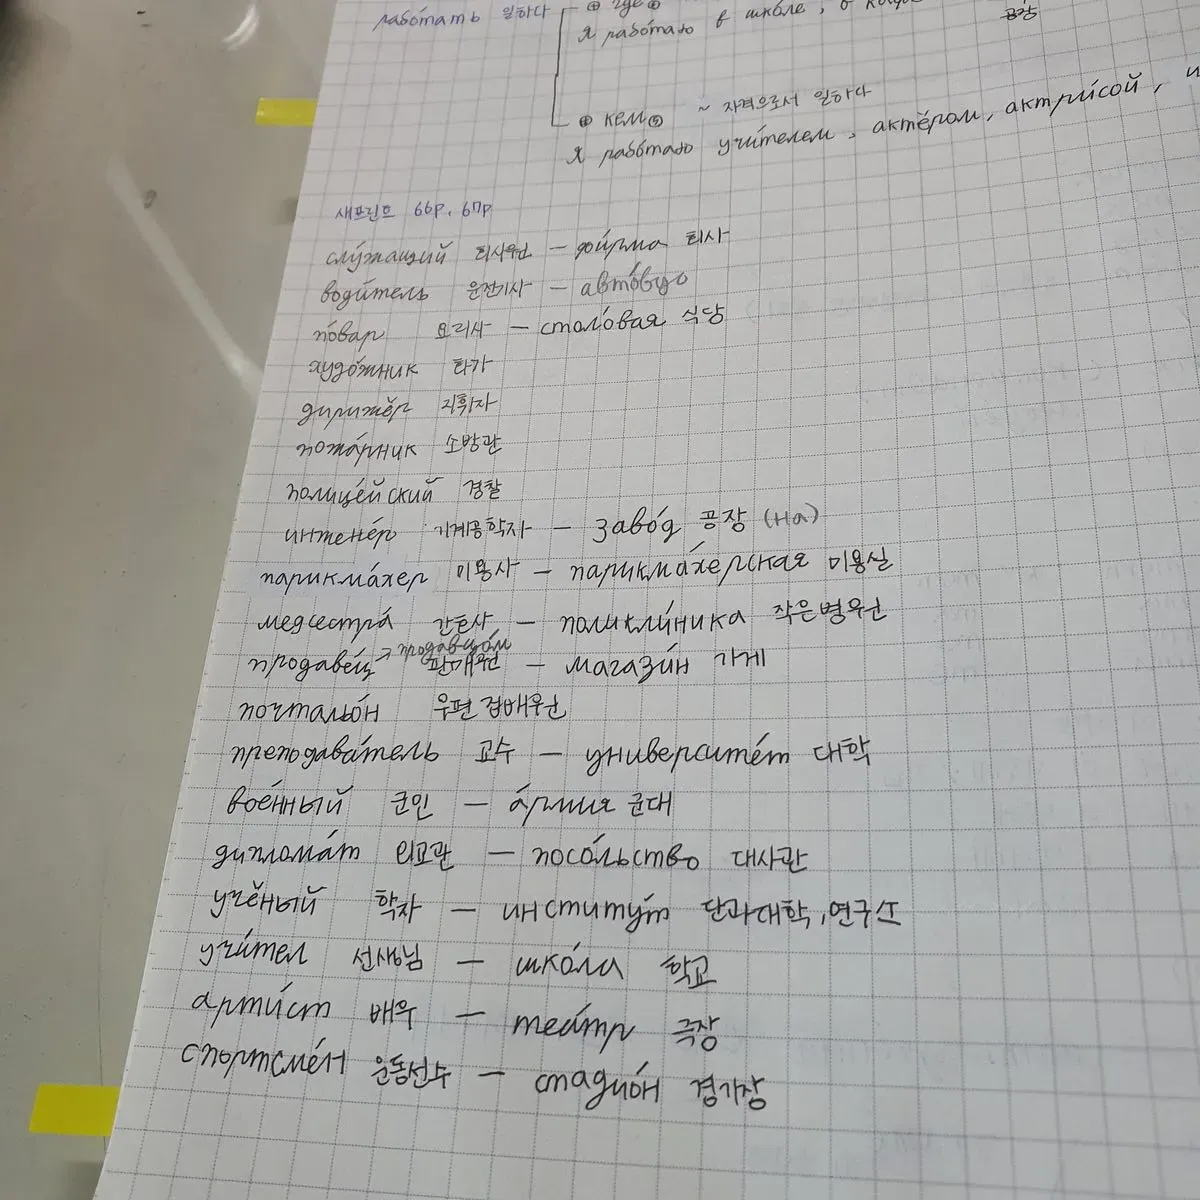 рабо́тать 일하다 ⊕ где⑥
Я рабо́таю в шко́ле,
공장
⊕ кем⑤ ~ 자격으로서 일하다
Я рабо́таю учи́телем, актёром, актри́сой,
새프린트 66p. 67p
слу́жащий 회사원 – фи́рма 회사
води́тель 운전기사 – авто́бус
по́вар 요리사 – столо́вая 식당
худо́жник 화가
дирижёр 지휘자
пожа́рник 소방관
полице́йский 경찰
инжене́р 기계공학자 – заво́д 공장 (на)
парикма́хер 미용사 – парикма́херская 미용실
медсестра́ 간호사 – поликли́ника 작은병원
продаве́ц → продавцо́м 판매원 – магази́н 가게
почтальо́н 우편집배원
преподава́тель 교수 – университе́т 대학
вое́нный 군인 – а́рмия 군대
диплома́т 외교관 – посо́льство 대사관
учёный 학자 – институ́т 단과대학, 연구소
учи́тел 선생님 – шко́ла 학교
арти́ст 배우 – теа́тр 극장
спортсме́н 운동선수 – стадио́н 경기장